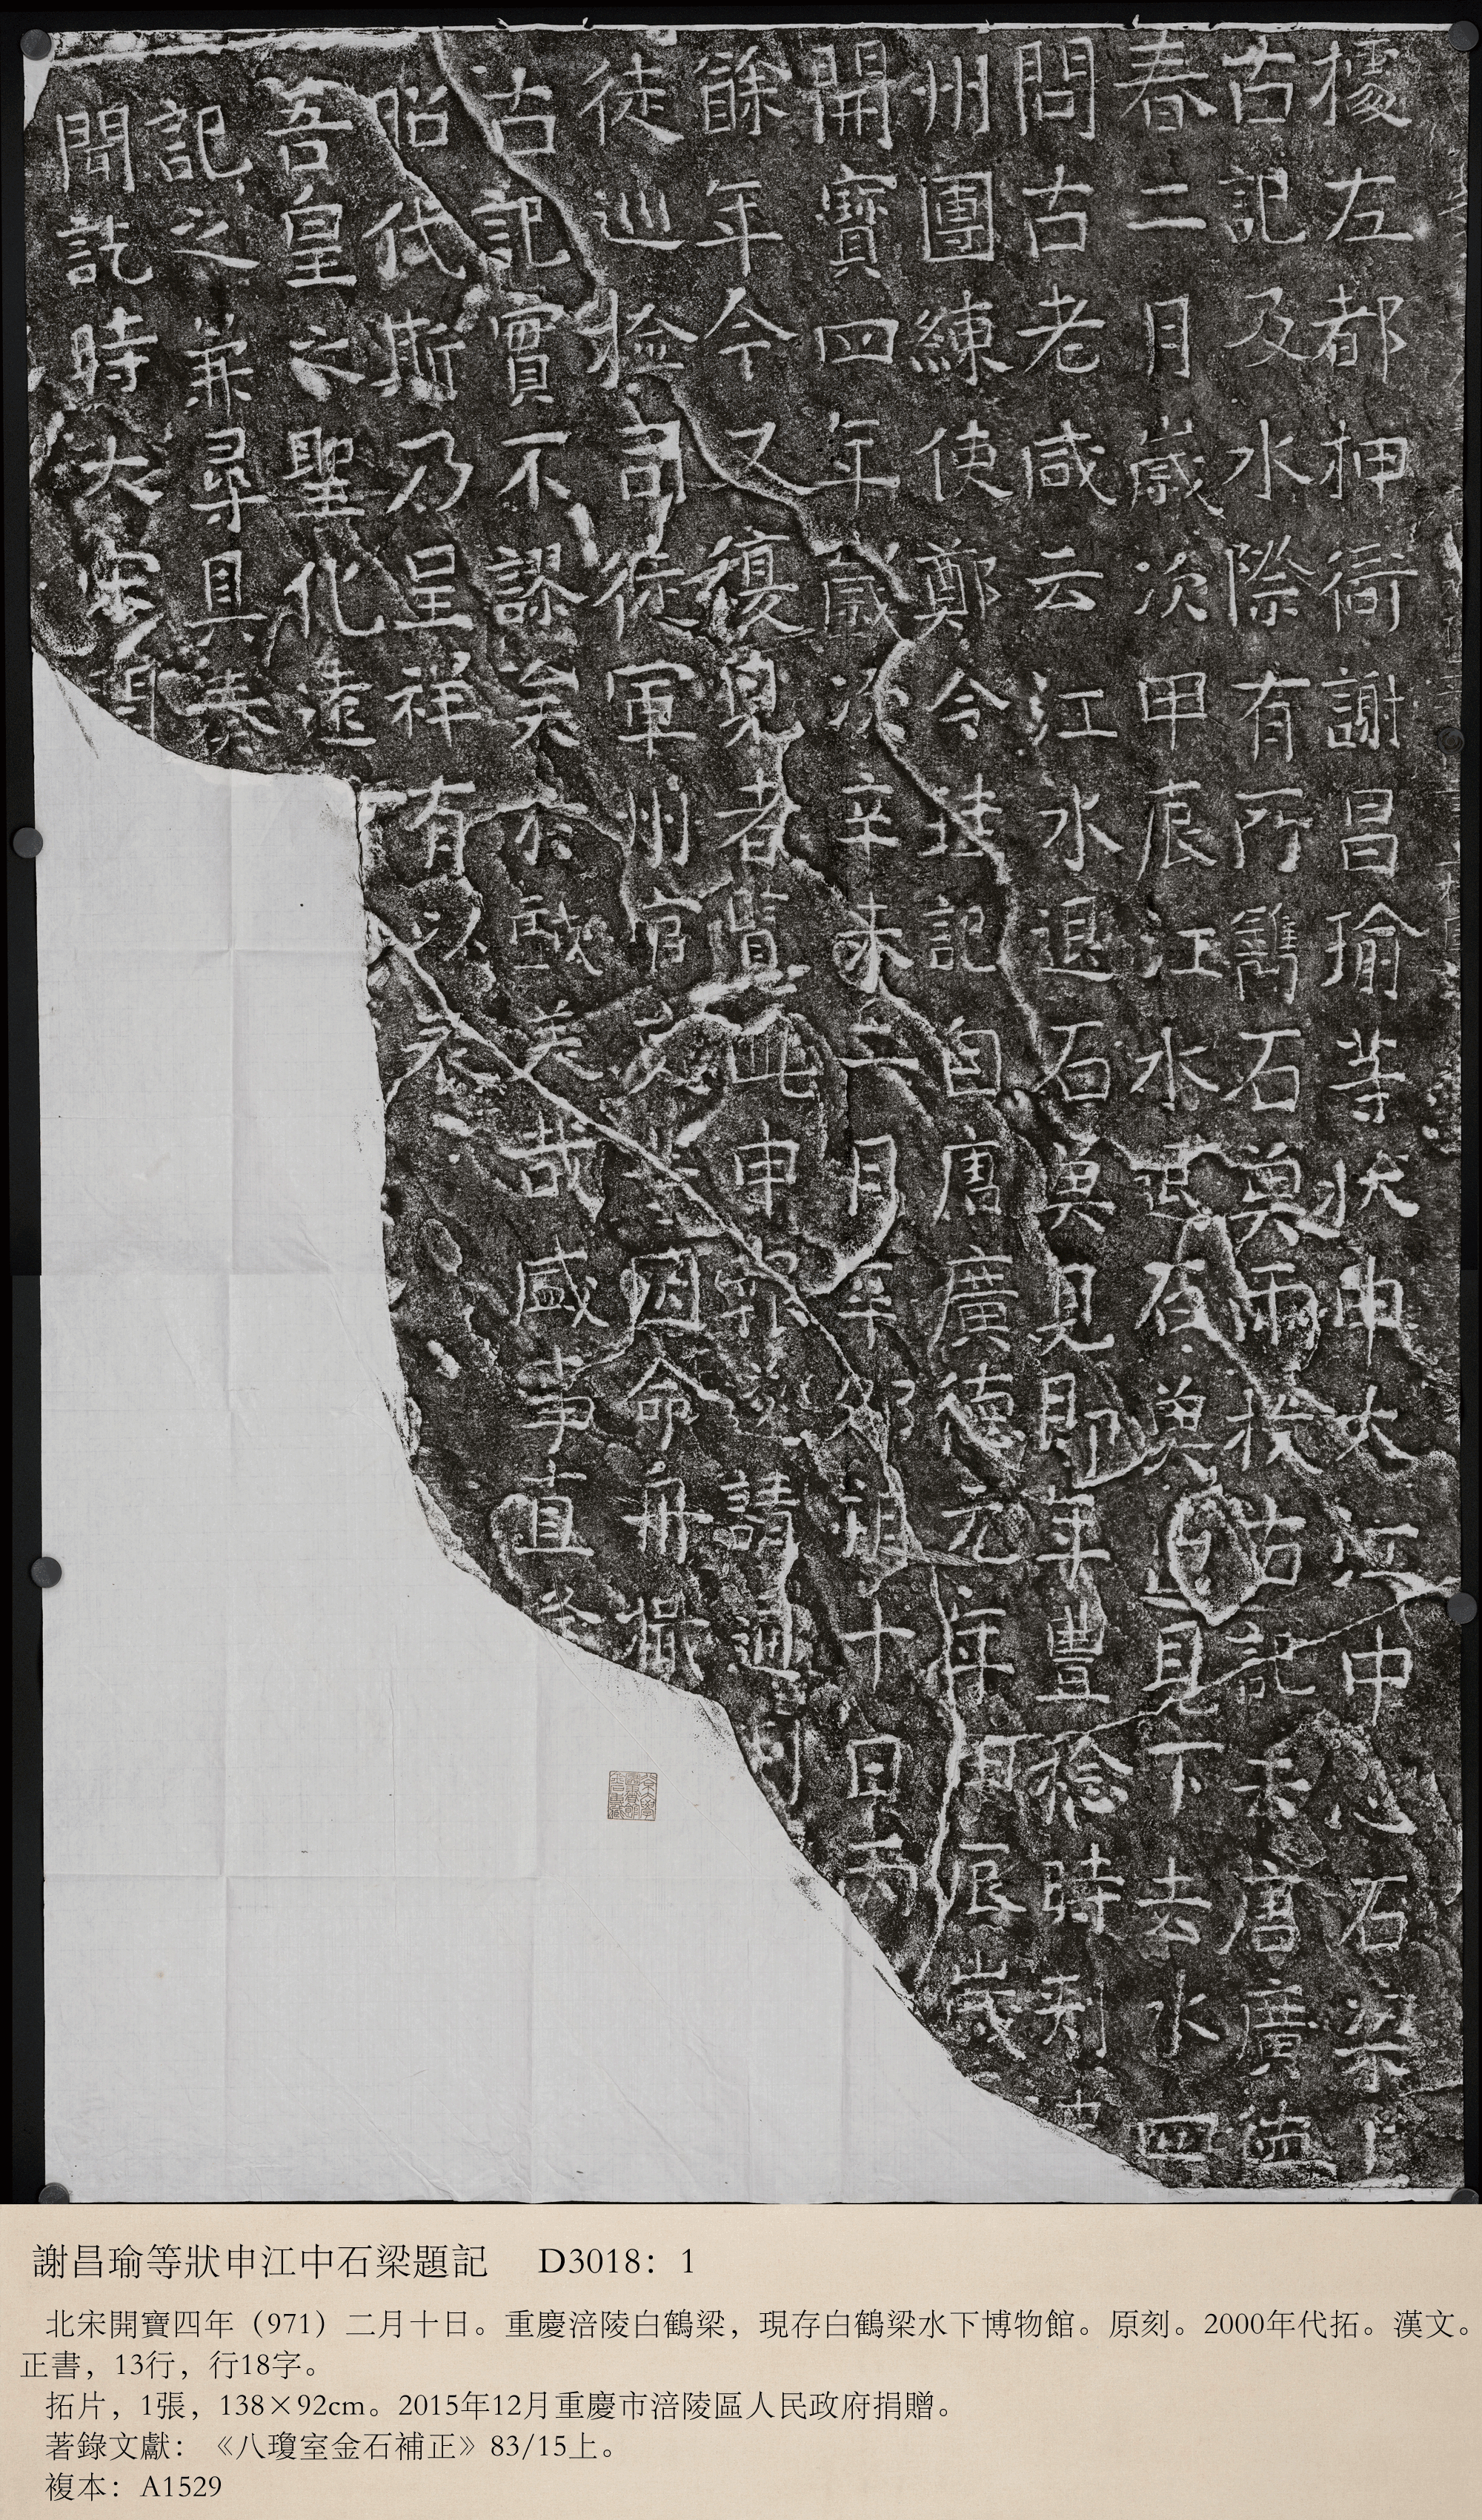 據左都押衙謝昌瑜等狀申大江中心石梁上
古記及水際有所鐫石魚兩枚古記云唐廣德
春二月歲次甲辰江水退石魚出見下去水四
問古老咸云江水退石魚見即年豐稔時刺史
州團練使鄭令珪記自唐廣德元年甲辰歲
開寶四年歲次辛未二月辛卯朔十日丙
餘年今又復見者覽此申報遂請通判
徒巡檢司徒軍州官等因命舟檝
古記實不謬矣於戲美哉盛事直
昭代斯乃呈祥有以表
吾皇之聖化遠
記之兼尋具奏
聞訖時大宋開
謝昌瑜等狀申江中石梁題記 D3018：1
北宋開寶四年（971）二月十日。重慶涪陵白鶴梁，現存白鶴梁水下博物館。原刻。2000年代拓。漢文。
正書，13行，行18字。
拓片，1張，138×92cm。2015年12月重慶市涪陵區人民政府捐贈。
著錄文獻：《八瓊室金石補正》83/15上。
複本：A1529